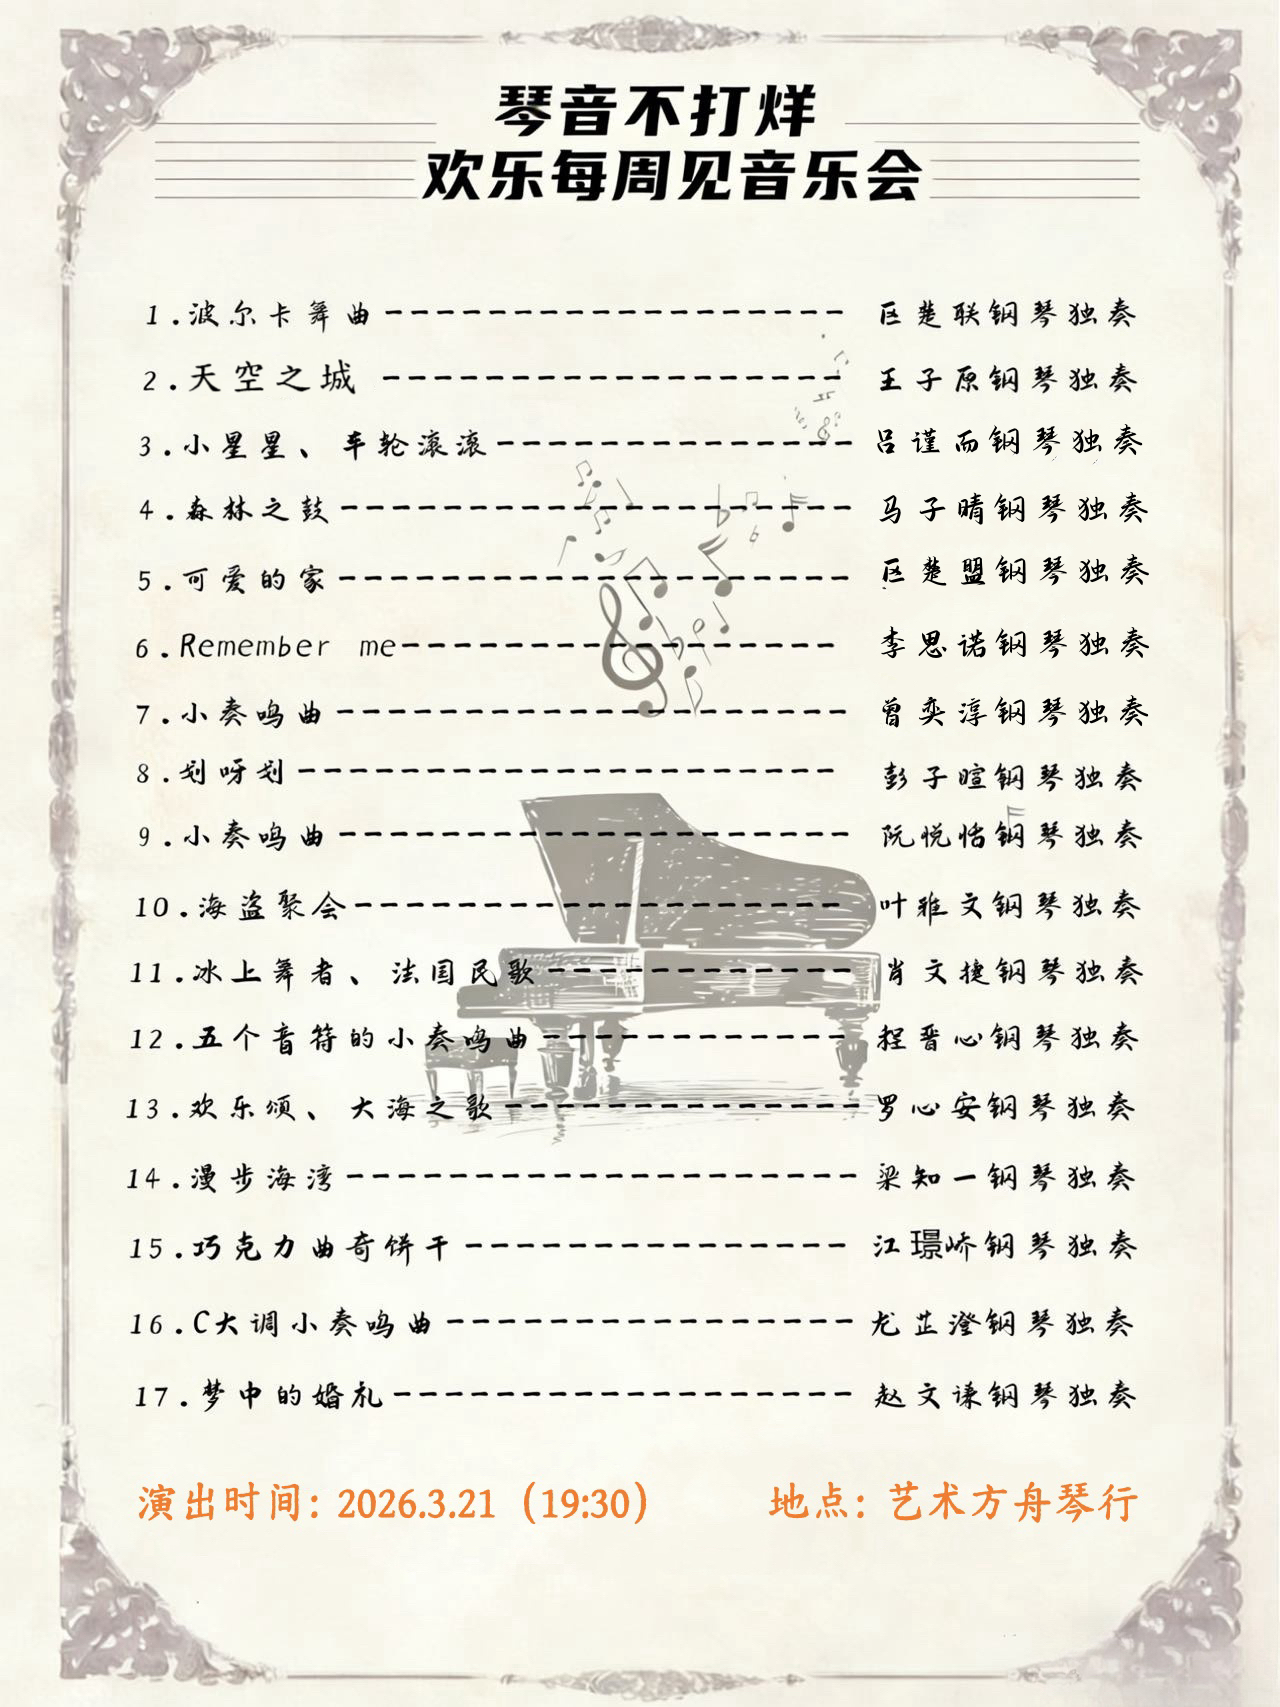 琴音不打烊
欢乐每周见音乐会
1.波尔卡舞曲------------------- 区楚联钢琴独奏
2.天空之城------------------- 王子原钢琴独奏
3.小星星、车轮滚滚--------------- 吕谨而钢琴独奏
4.森林之鼓--------------------- 马子晴钢琴独奏
5.可爱的家--------------------- 区楚盟钢琴独奏
6.Remember me------------------ 李思诺钢琴独奏
7.小奏鸣曲--------------------- 曾奕淳钢琴独奏
8.划呀划---------------------- 彭子暄钢琴独奏
9.小奏鸣曲--------------------- 阮悦恬钢琴独奏
10.海盗聚会-------------------- 叶雅文钢琴独奏
11.冰上舞者、法国民歌------------- 肖文捷钢琴独奏
12.五个音符的小奏鸣曲------------- 程晋心钢琴独奏
13.欢乐颂、大海之歌--------------- 罗心安钢琴独奏
14.漫步海湾--------------------- 梁知一钢琴独奏
15.巧克力曲奇饼干---------------- 江璟峤钢琴独奏
16.C大调小奏鸣曲----------------- 龙芷澄钢琴独奏
17.梦中的婚礼------------------- 赵文谦钢琴独奏
演出时间：2026.3.21（19:30） 地点：艺术方舟琴行